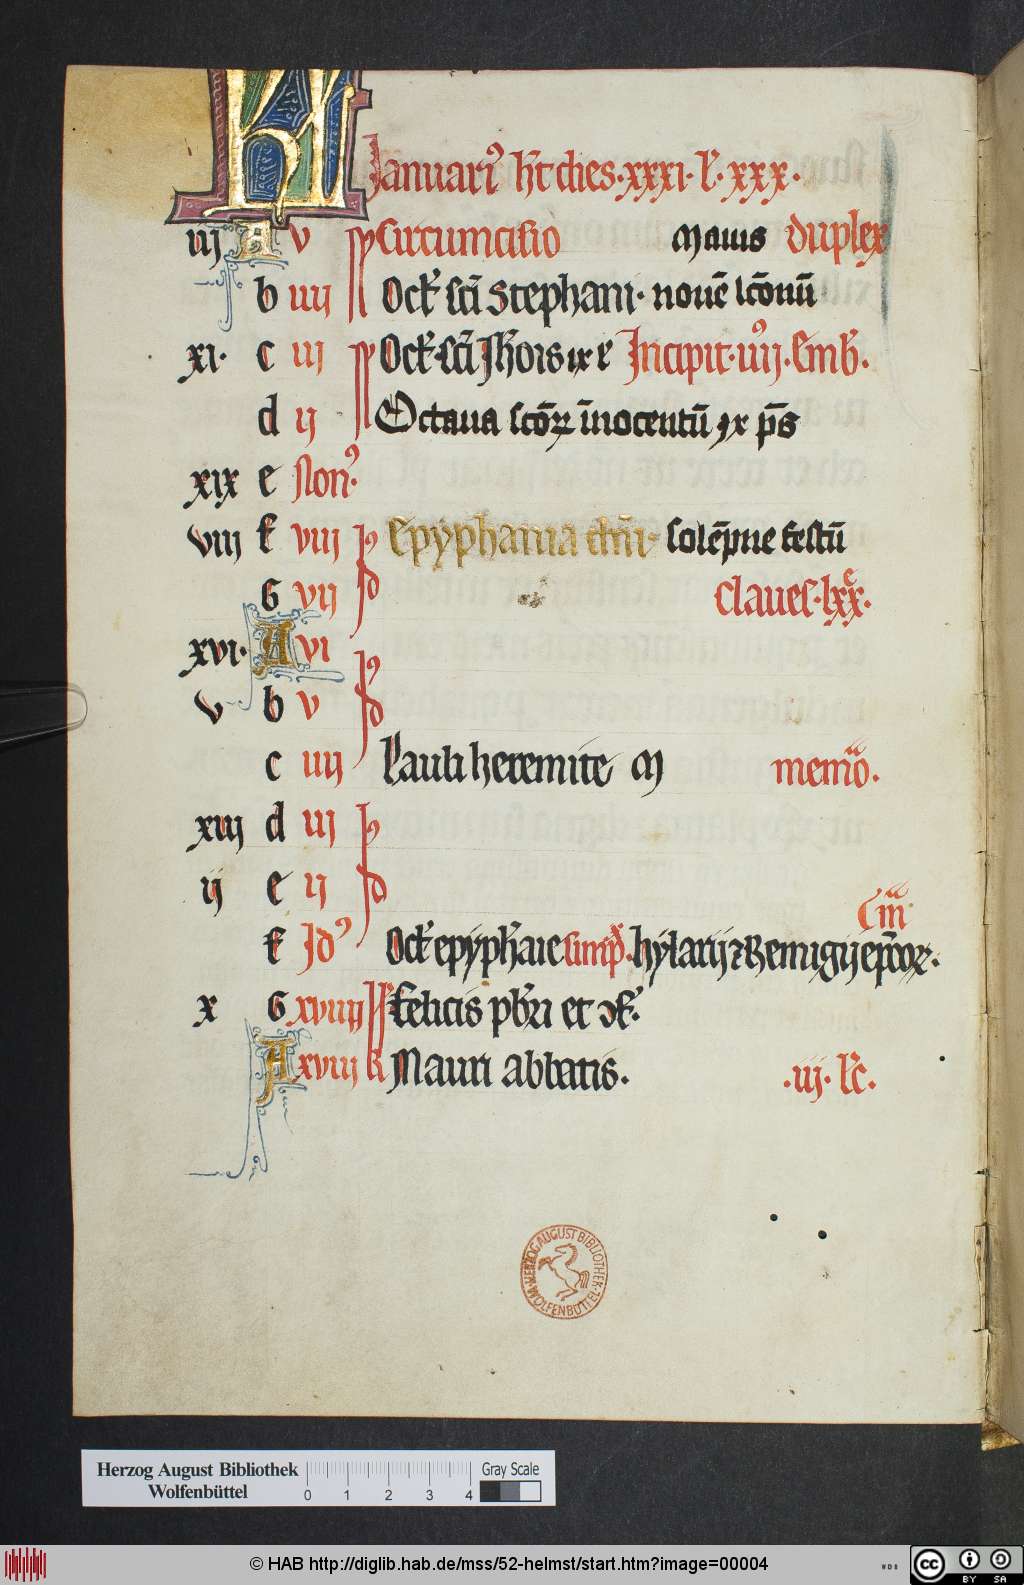 KL Januari᷒ ht dies·xxxi·l᷑·xxx·
iij A v Circumcisio Maius duplex
b iiij Oct᷑ sc̄i Stephani· nouē lc̄onū
xi· c iij Oct᷑·sc̄i Joh̄is ix l᷑ Incipit·iiij᷒·Emb̄·
d ij Octaua sc̄oꝝ īnocentū ix p̄s
xix e Non᷒·
viij f viij Epyphania dn̄i· solēpne festū
G vij Claues·lxx᷑·
xvi· A vi
v b v
c iiij Pauli heremite M memo᷑·
xiij d iij
ij e ij
Cm̄
f Id᷒ Oct᷑ epyph̄aie simp̄·hylarij ⁊ Remigij ep̄coꝝ·
x G xviiij Felicis pb̄ri et ꝯf᷑·
A xviij k Mauri abbatis· ·iij· l᷑c·
HERZOG AUGUST BIBLIOTHEK
WOLFENBÜTTEL
Herzog August Bibliothek
Wolfenbüttel
0 1 2 3 4
Gray Scale
© HAB http://diglib.hab.de/mss/52-helmst/start.htm?image=00004
WDB
cc BY SA